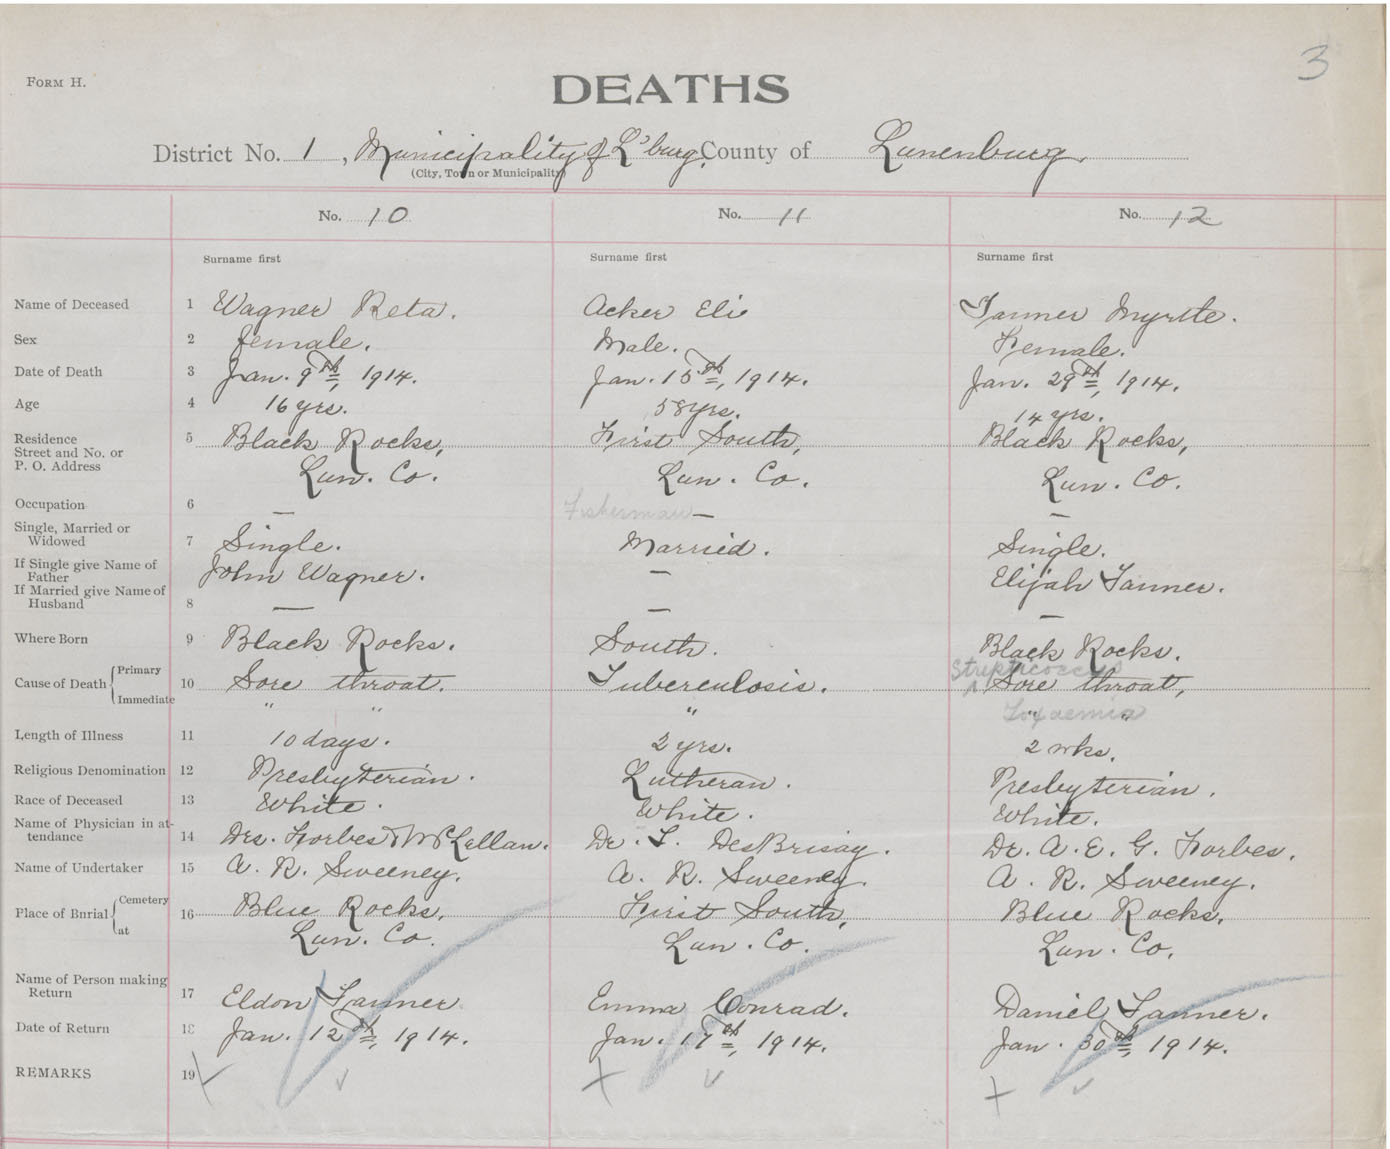 3
FORM H.
DEATHS
District No. 1, Municipality of L'burg, County of Lunenburg.
(City, Town or Municipality)
No. 10 No. 11 No. 12
Surname first Surname first Surname first
Name of Deceased 1 Wagner Reta. Acker Eli Tanner Myrtle.
Sex 2 female. Male. Female.
Date of Death 3 Jan. 9th, 1914. Jan. 15th, 1914. Jan. 29th, 1914.
Age 4 16 yrs. 58 yrs. 14 yrs.
Residence 5 Black Rocks, First South, Black Rocks,
Street and No. or
P. O. Address Lun. Co. Lun. Co. Lun. Co.
Occupation 6 — Fisherman — —
Single, Married or
Widowed 7 Single. Married. Single.
If Single give Name of
Father John Wagner. — Elijah Tanner.
If Married give Name of
Husband 8 — — —
Where Born 9 Black Rocks. South. Black Rocks.
Streptococcus
Cause of Death { Primary 10 Sore throat. Tuberculosis. Sore throat,
Immediate " " " " " Toxaemia
Length of Illness 11 10 days. 2 yrs. 2 wks.
Religious Denomination 12 Presbyterian. Lutheran. Presbyterian.
Race of Deceased 13 White. White. White.
Name of Physician in at-
tendance 14 Drs. Forbes & McLellan. Dr. T. DesBrisay. Dr. A. E. G. Forbes.
Name of Undertaker 15 A. R. Sweeney. A. R. Sweeney. A. R. Sweeney.
Place of Burial { Cemetery 16 Blue Rocks, First South, Blue Rocks,
at Lun. Co. Lun. Co. Lun. Co.
Name of Person making
Return 17 Eldon Tanner Emma Conrad. Daniel Tanner.
Date of Return 18 Jan. 12th, 1914. Jan. 17th, 1914. Jan. 30th, 1914.
REMARKS 19